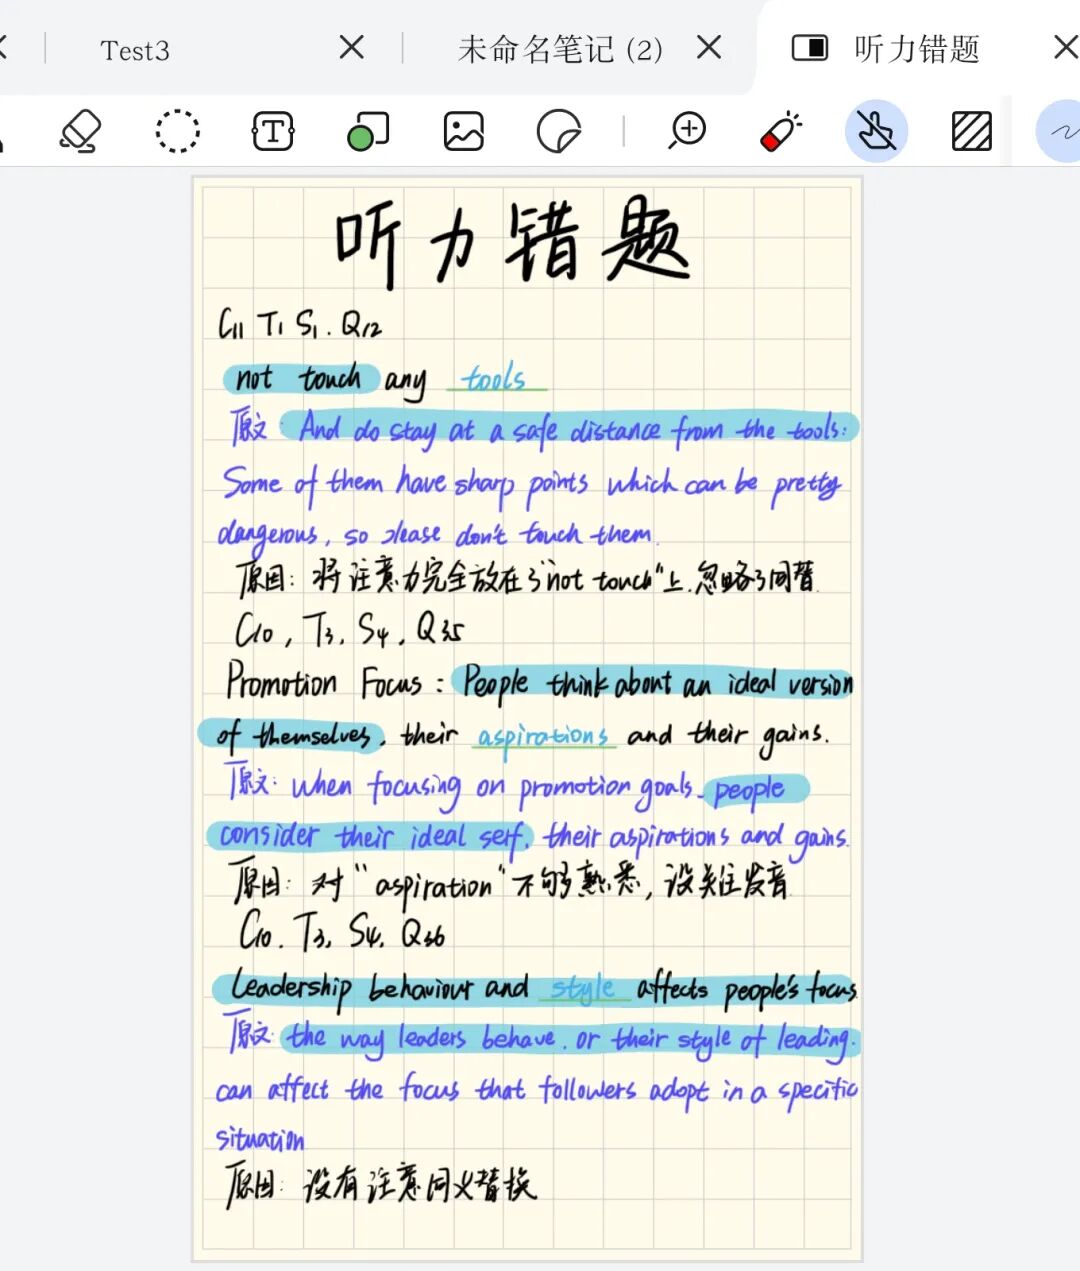 Test3
未命名笔记 (2)
听力错题
听力错题
C11 T1 S1. Q12
not touch any tools
原文: And do stay at a safe distance from the tools:
Some of them have sharp points which can be pretty
dangerous, so please don't touch them.
原因: 将注意力完全放在了"not touch"上.忽略了同替
C10, T3, S4, Q35
Promotion Focus: People think about an ideal version
of themselves, their aspirations and their gains.
原文: When focusing on promotion goals, people
consider their ideal serf, their aspirations and gains.
原因: 对"aspiration"不够熟悉, 没关注发音
C10. T3, S4, Q36
Leadership behaviour and style affects people's focus
原文: the way leaders behave. or their style of leading.
can affect the focus that followers adopt in a specific
situation
原因: 没有注意同义替换